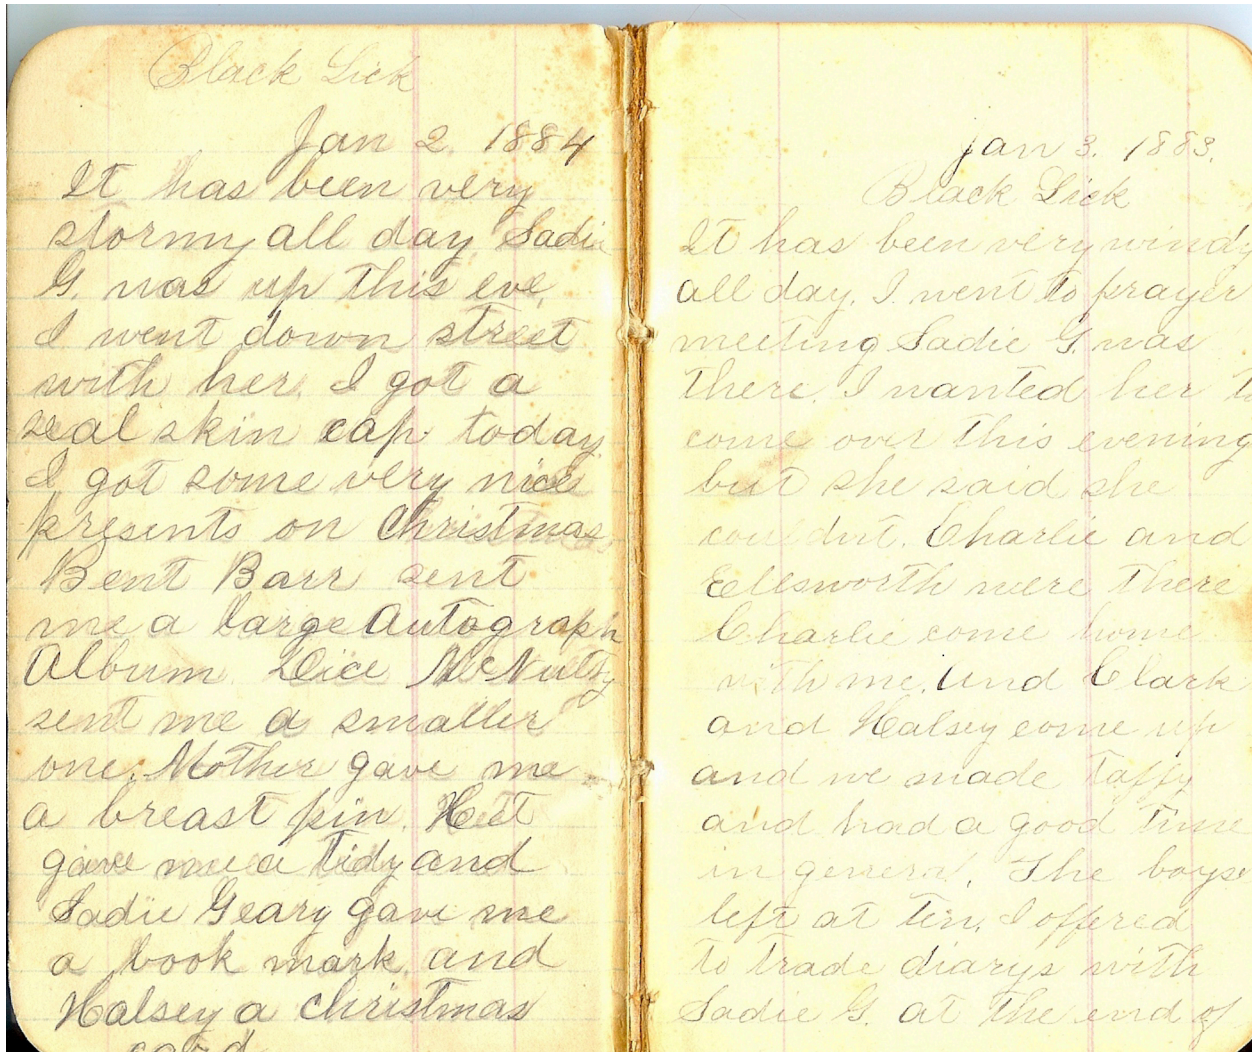 Black Lick
Jan 2. 1884
It has been very
stormy all day Sadie
G. was up this eve.
I went down street
with her. I got a
seal skin cap today.
I got some very nice
presents on Christmas.
Bent Barr sent
me a large Autograph
Album Dice McNutty
sent me a smaller
one. Mother gave me
a breast pin. Het
gave me a tidy and
Sadie Geary gave me
a book mark. and
Halsey a Christmas
card
Jan 3. 1883.
Black Lick
It has been very windy
all day. I went to prayer
meeting Sadie G. was
there. I wanted her to
come over this evening
but she said she
couldnt. Charlie and
Ellsworth were there
Charlie come home
with me. And Clark
and Halsey come up
and we made taffy
and had a good time
in general. The boys
left at ten. I offered
to trade diarys with
Sadie G. at the end of